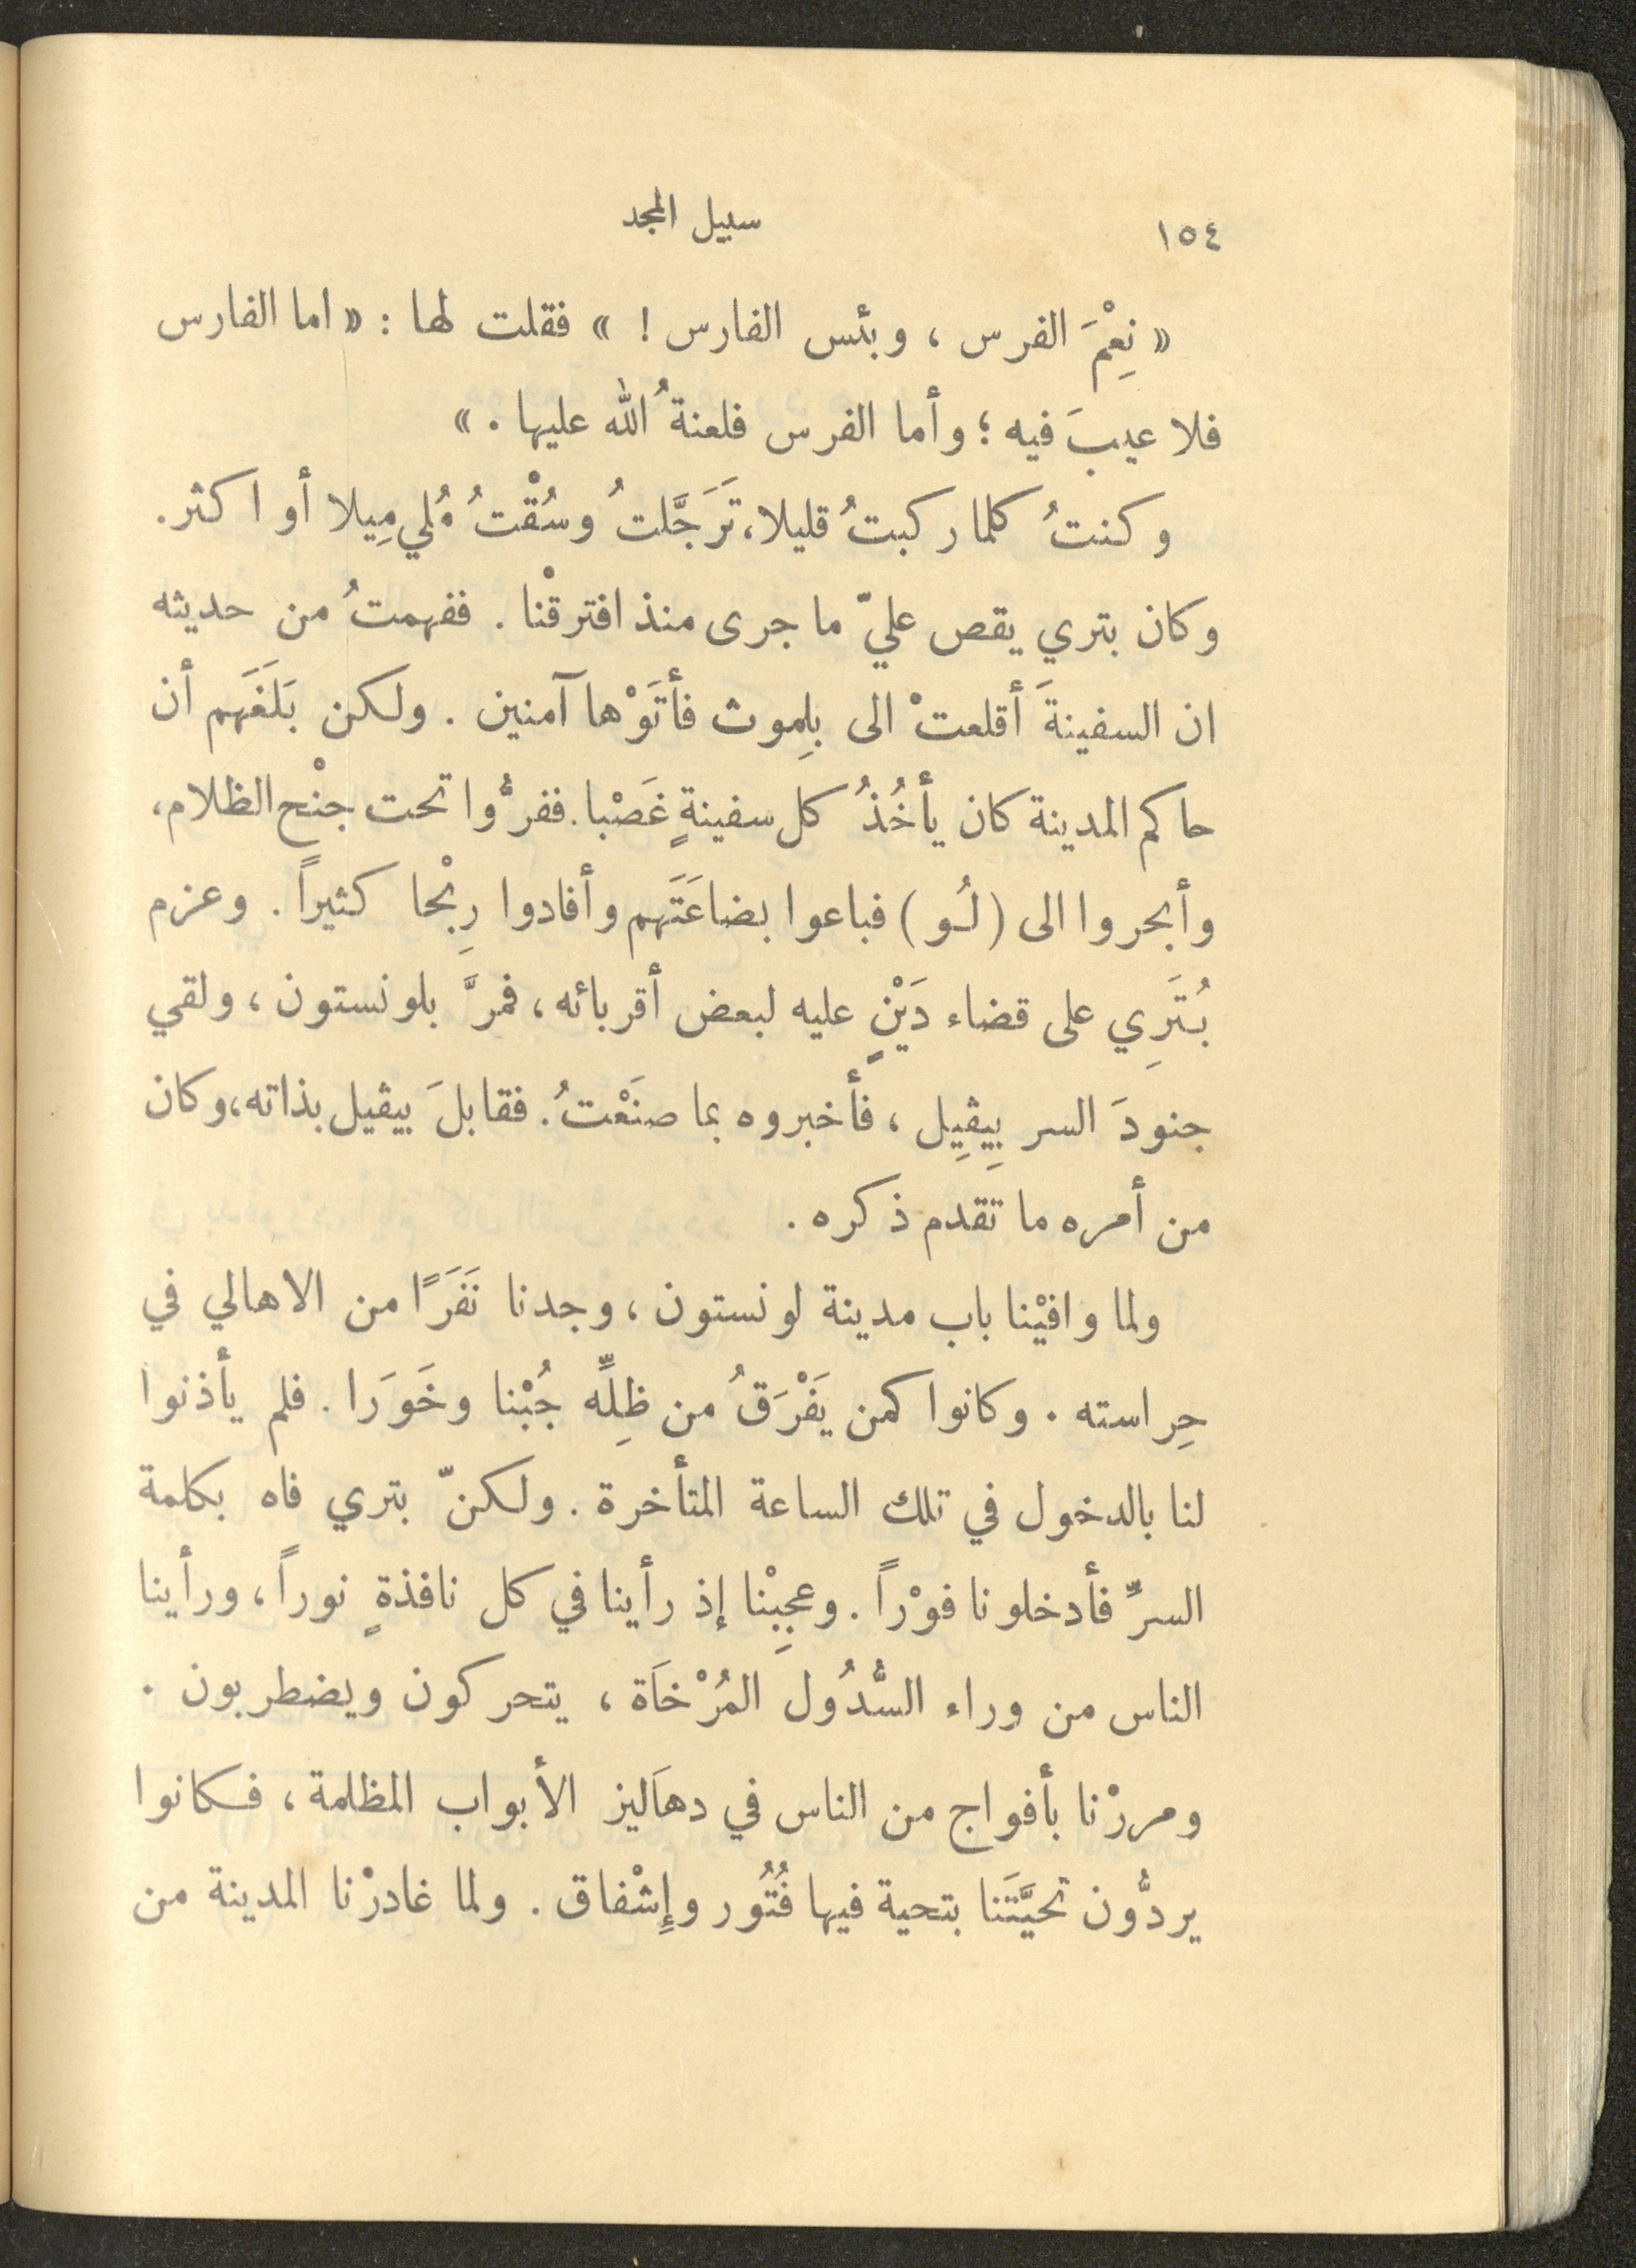 ١٥٤ سبيل المجد
« نِعْمَ الفرس ، وبئس الفارس ! » فقلت لها : « اما الفارس
فلا عيبَ فيه ؛ وأما الفرس فلعنةُ الله عليها . »
وكنتُ كلما ركبتُ قليلا، تَرَجَّلتُ وسُقْتُ مُلي مِيلا أو اكثر.
وكان بتري يقص عليّ ما جرى منذ افترقْنا . ففهمتُ من حديثه
ان السفينةَ أقلعتْ الى بِلِموث فأتَوْها آمنين . ولكن بَلَغَهم أن
حاكم المدينة كان يأخُذُ كل سفينةٍ غَصْبا. ففرُّوا تحت جنْح الظلام،
وأبحروا الى ( لُو ) فباعوا بضاعَتَهم وأفادوا رِبْحا كثيراً . وعزم
بُتَرِي على قضاء دَيْنٍ عليه لبعض أقربائه ، فمرَّ بلونستون ، ولقي
جنودَ السر بِيڤِيل ، فأخبروه بما صنَعْتُ. فقابلَ بيڤيل بذاته، وكان
من أمره ما تقدم ذكره .
ولما وافيْنا باب مدينة لونستون ، وجدنا نَفَرًا من الاهالي في
حِراسته . وكانوا كمن يَفْرَقُ من ظِلِّه جُبْنا وخَوَرا . فلم يأذنوا
لنا بالدخول في تلك الساعة المتأخرة . ولكنّ بتري فاه بكلمة
السرِّ فأدخلونا فوْراً . وعجِبْنا إذ رأينا في كل نافذةٍ نوراً ، ورأينا
الناس من وراء السُّدُول المُرْخَاَة ، يتحركون ويضطربون .
ومررْنا بأفواج من الناس في دهَاليز الأبواب المظلمة ، فكانوا
يردُّون تحيَّتَنا بتحية فيها فُتُور وإِشْفاق . ولما غادرْنا المدينة من